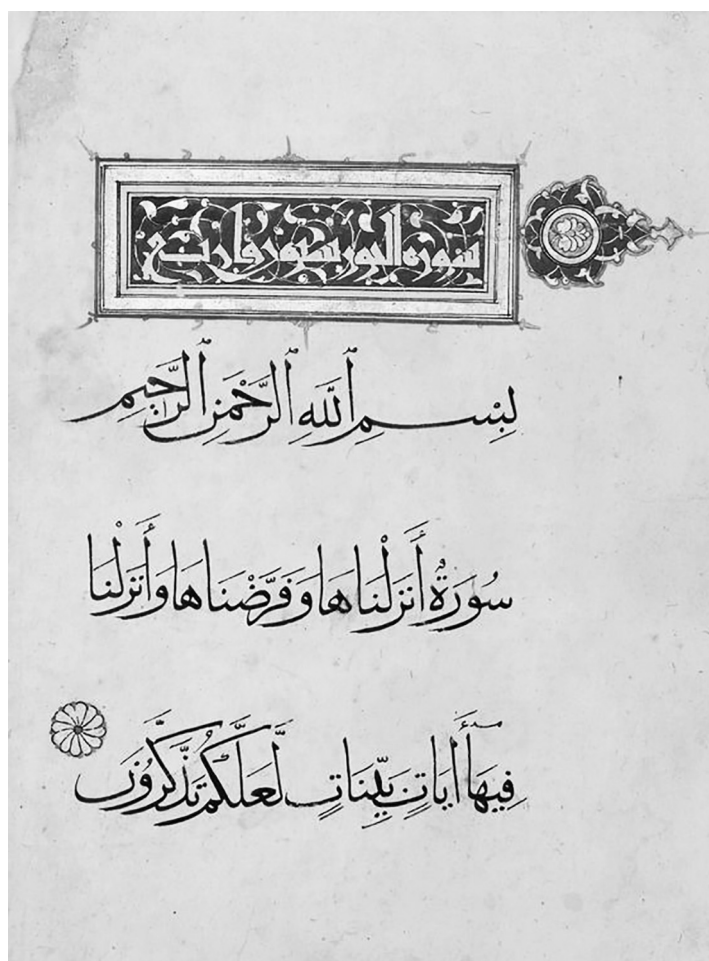 سورة النور ستون واربع
بِسْمِ ٱللَّهِ ٱلرَّحْمَنِ ٱلرَّحِيمِ
سُورَةٌ أَنزَلْنَاهَا وَفَرَّضْنَاهَا وَأَنزَلْنَا
فِيهَا أَيَاتٍ بَيِّنَاتٍ لَّعَلَّكُمْ تَذَّكَّرُونَ